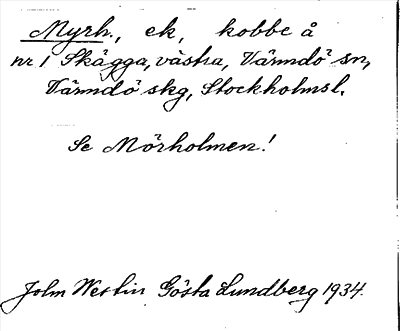 Myrh., ek, kobbe å
nr 1 Skägga, västra, Värmdö sn,
Värmdö skg, Stockholmsl.
Se Mörholmen!
John Westin Gösta Lundberg 1934.